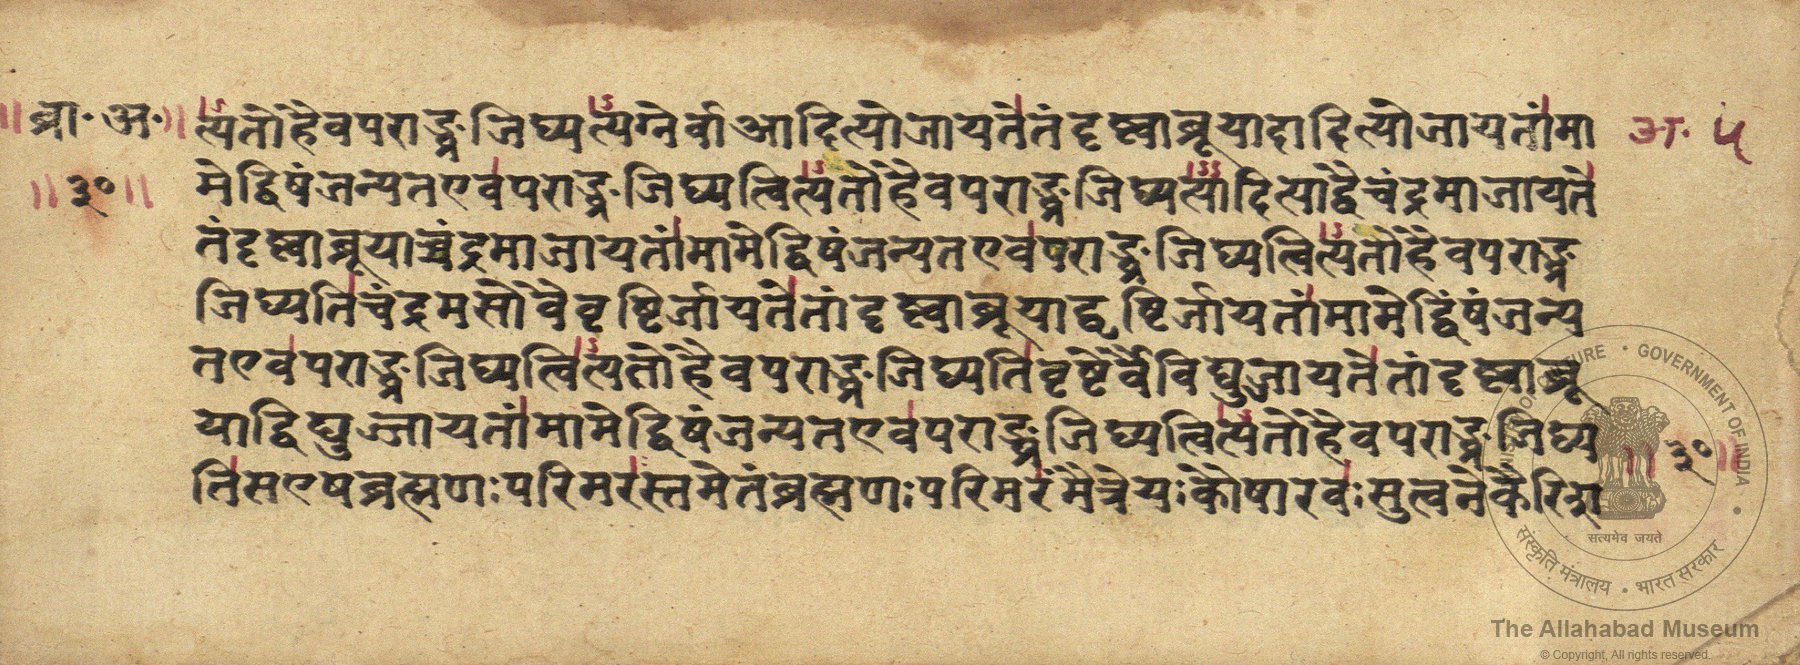 ॥ब्रा॰अ॰॥ त्यतोहैवपराङ्प्रजिघ्यत्यग्नेर्वाआदित्योजायतेतंदृष्ट्वाब्रूयादादित्योजायतांमा अ॰ ५
॥३०॥ मेद्विषंजन्यतएवपराङ्प्रजिघ्यत्वित्यतोहैवपराङ्प्रजिघ्यत्यादित्याद्वैचंद्रमाजायते
तंदृष्ट्वाब्रूयाच्चंद्रमाजायतांमामेद्विषंजन्यतएवपराङ्प्रजिघ्यत्वित्यतोहैवपराङ्प्र
जिघ्यतिचंद्रमसोवैवृष्टिर्जायतेतांदृष्ट्वाब्रूयाद्वृष्टिर्जायतांमामेद्विषंजन्य
तएवपराङ्प्रजिघ्यत्वित्यतोहैवपराङ्प्रजिघ्यतिवृष्टेर्वैविद्युज्जायतेतांदृष्ट्वाब्रू
याद्विद्युज्जायतांमामेद्विषंजन्यतएवपराङ्प्रजिघ्यत्वित्यतोहैवपराङ्प्रजिघ्य
तिसएषब्रह्मणःपरिमरस्तमेतंब्रह्मणःपरिमरंमैत्रेयःकौषारवःसुत्वनेकैरिशा ॥३०॥
MINISTRY OF CULTURE • GOVERNMENT OF INDIA
सत्यमेव जयते
संस्कृति मंत्रालय • भारत सरकार
The Allahabad Museum
© Copyright, All rights reserved.